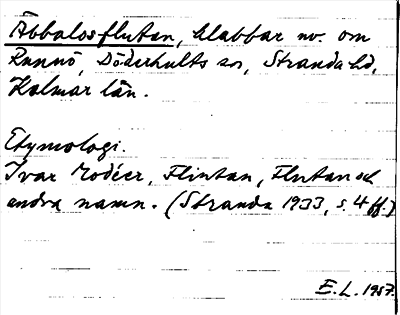 Äbbalosflutan, klabbar nv. om
Runnö, Döderhults sn, Stranda hd,
Kalmar län.
Etymologi.
Ivar Modéer, Flintan, Flutan och
andra namn. (Stranda 1933, s. 4 ff.)
E.L. 1957.